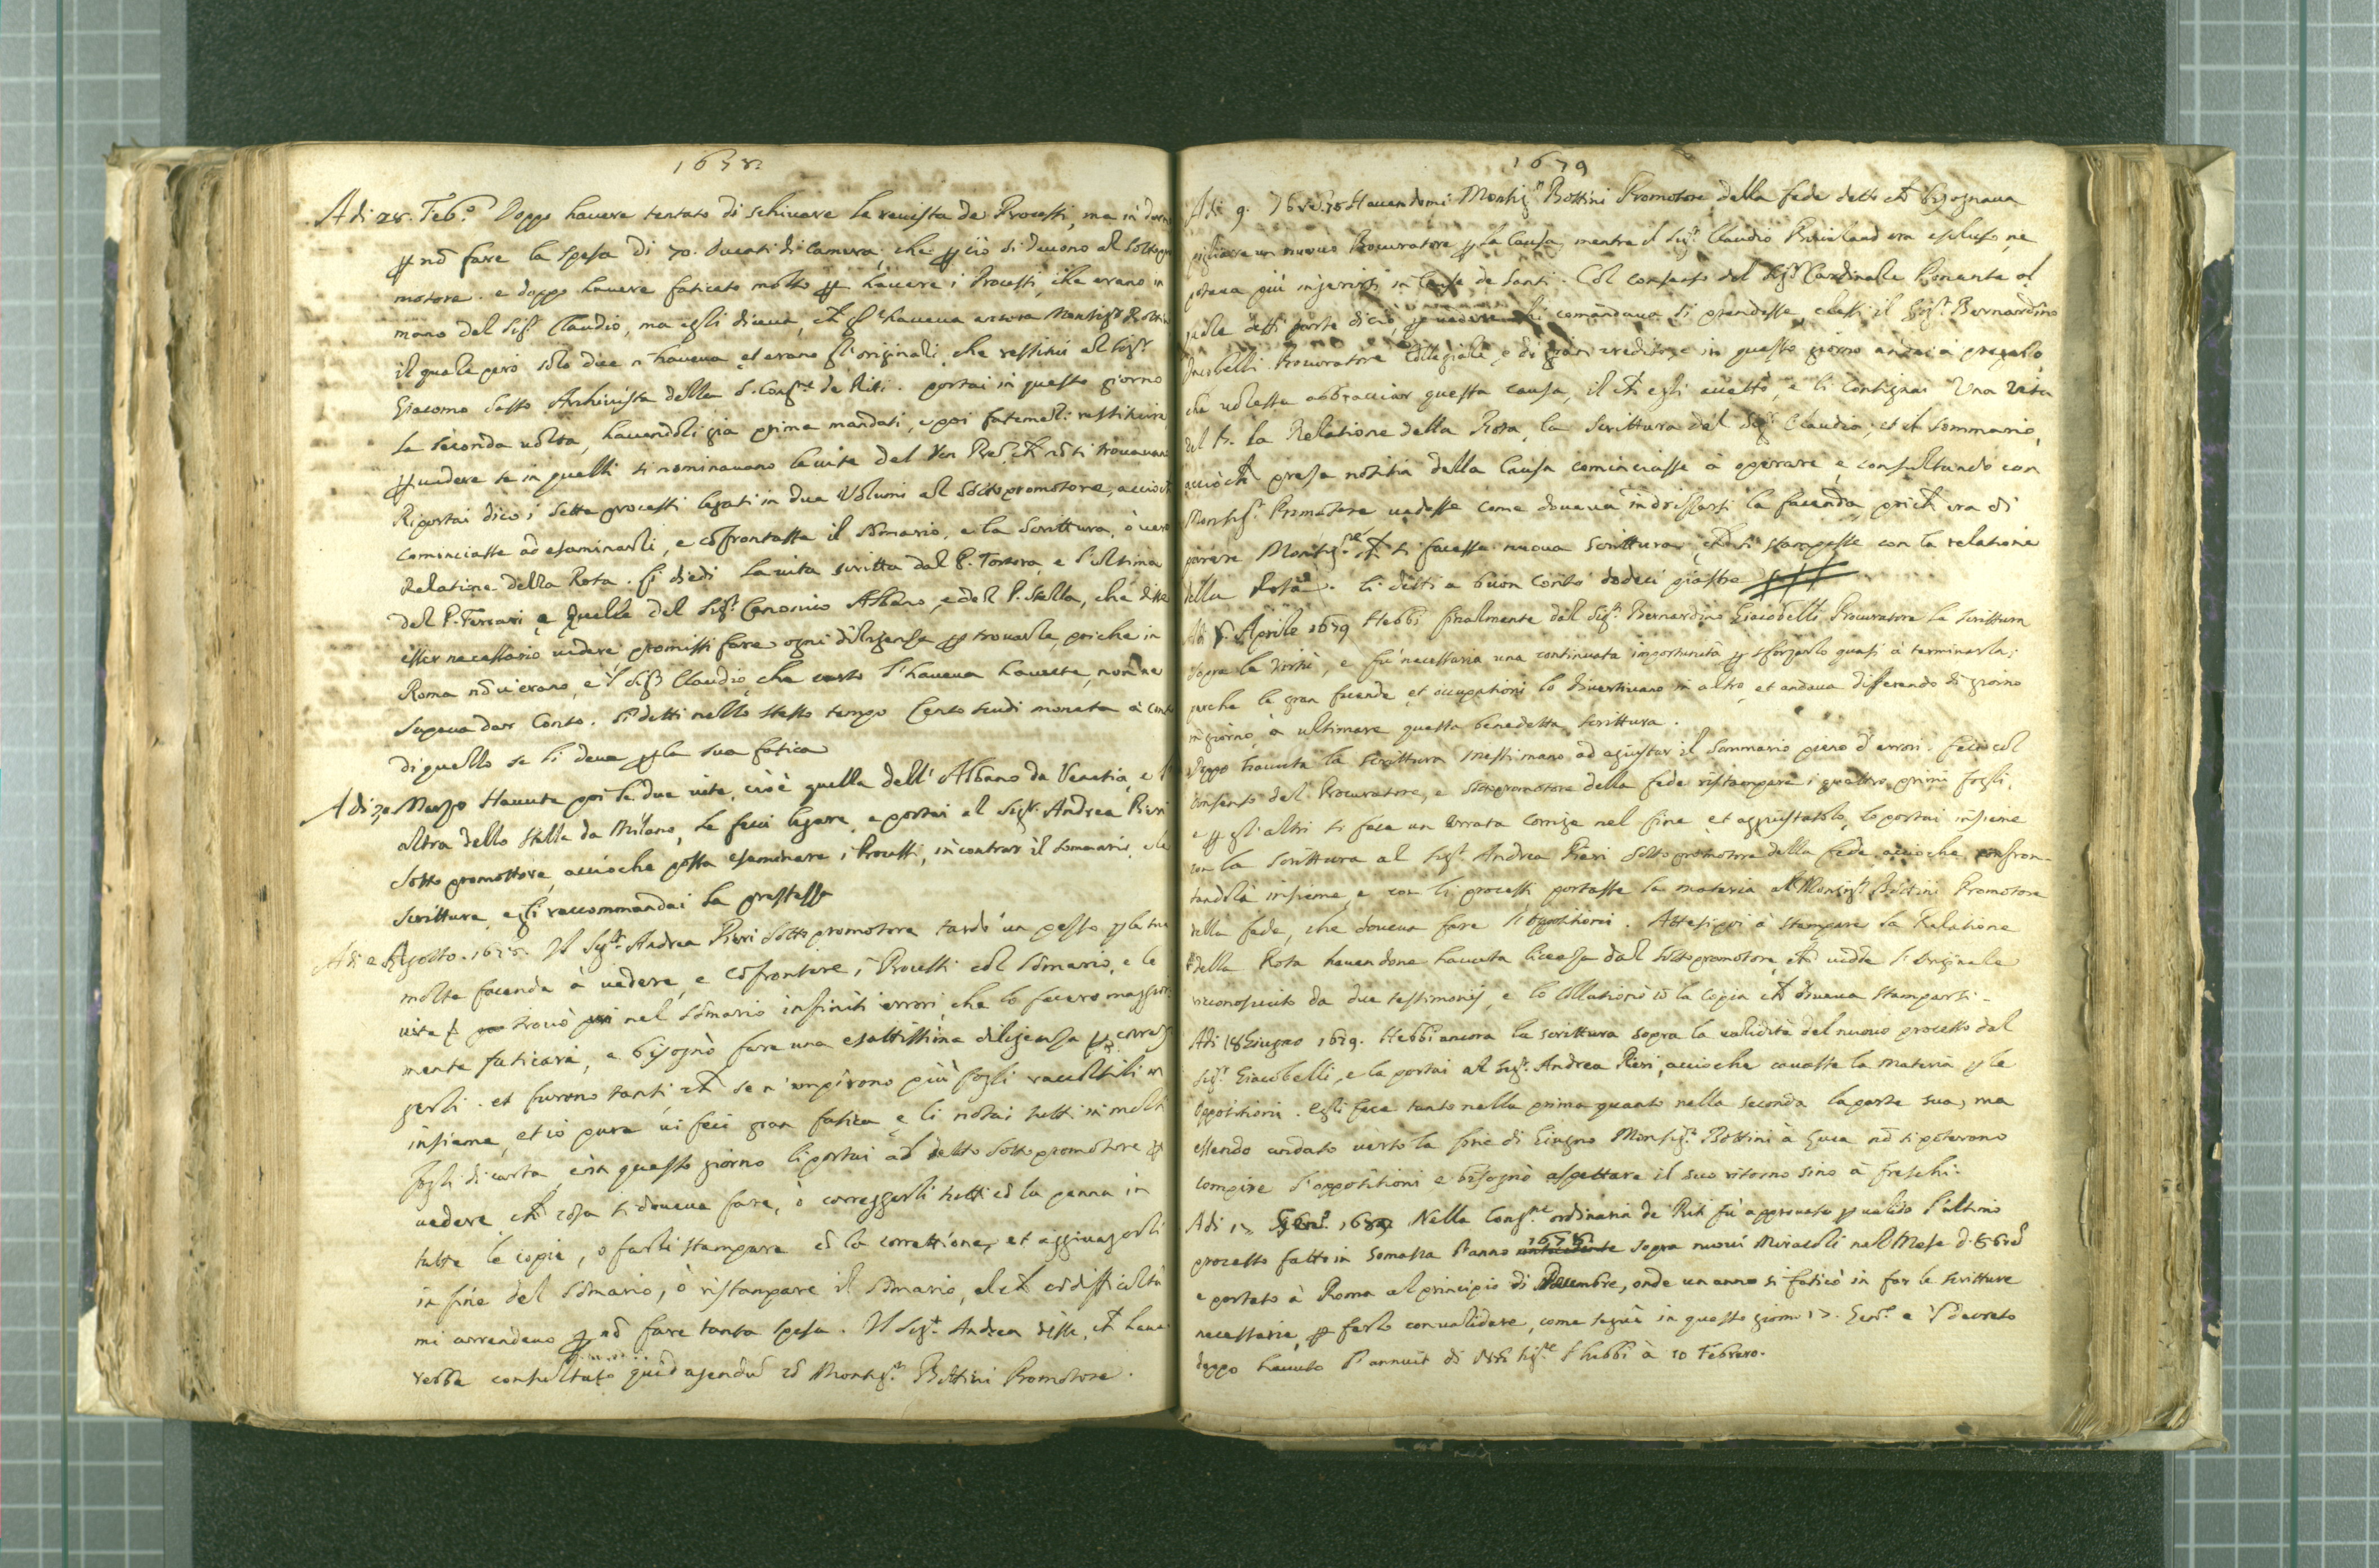 1678
A di 28. Feb.º Doppo havere tentato di schivare la revista de Processi, ma in darno
ꝑ nõ fare la spesa di 70. Ducati di Camera, che ꝑ ciò si devono al Sottopro
motore. e doppo havere faticato molto ꝑ havere i Processi, che erano in
mano del Sigr Claudio, ma egli diceva, ch̃ gl'haveva ancora Monsigr Bottini
il quale però solo due n'haveva et erano gl'originali, che restituì al Sigr
Giacomo Sasso Archivista della S. Congne de Riti. portai in questo giorno
la seconda volta, havendoli già prima mandati, e poi fatemeli restituire
ꝑ vedere se in quelli si nominavano le vite del Ven Pre͂, ch̃ nõ si trovavano
Riportai dico i sette processi legati in due Volumi al Sottopromotore, acciò ch̃
cominciasse ad esaminarli, e cõfrontasse il Sõmario, e la Scrittura, ò vero
Relatione della Rota. Li diedi la vita scritta dal P. Tortora, e l'ultima
del P. Ferrari e quelle del Sigr Canonico Albano, e del P. Stella, che disse
esser necessario vedere promissi fare ogni diligenza ꝑ trovarle, poiche in
Roma nõ v'erano, e'l Sigr Claudio che l'haveva havute, non ne
sapeva dar Conto. Li detti nello stesso tempo Cento scudi moneta à conto
di quello se li deve ꝑ la sua fatica
A di 30 Marzo Havute poi le due vite, cioè quella dell'Albano da Venetia, e l'
altra dello Stella da Milano, le feci legare, e portai al Sigr. Andrea Pieri
Sotto promottore, accioche possa esaminare i Processi, incontrar il Sommario, e la
Scrittura, e gli raccommandai la prestezza
A di 2 Agosto. 1678. Il Sigr. Andrea Pieri Sottopromotore tardò un pezzo ꝑ le sue
molte facende à vedere, e cõfrontare i Processi col Sõmario, e le
vite trovò nel Sõmario infiniti errori, che lo fecero maggior
mente faticare, e bisognò fare una esattissima diligenza ꝑ correg
gerli. et furono tanti, ch̃ se n'empirono più fogli raccoltili
insieme, et io pure vi feci gran fatica e li notai tutti in molti
fogli di carta, e in questo giorno li portai al detto Sottopromotore ꝑ
vedere, ch̃ cosa si doveva fare, ò correggerli tutti cõ la penna in
tutte le copie, o farli stampare cõ la correttione, et aggiungerli
in fine del Sõmario, ò ristampare il Sõmario, al ch̃ cõ difficoltà
mi arrendevo ꝑ nõ fare tanta spesa. Il Sigr. Andrea disse, ch̃ have
rebbe consultato quid agendũ cõ Monsigr. Bottini Promotore.
1679
A di 9. Havendomi Monsigr Bottini Promotore della fede detto ch̃ bisognava
pigliare un nuovo Procuratore ꝑ la Causa, mentre il Sigr. Claudio era escluso, ne
poteva più ingerirsi in Cause de Santi. Col consenso del Sigr Cardinale Ponente al
quale detti parte di ciò, comandava si prendesse, elessi il Sigr. Bernardino
Procuratore Collegiale, e di gran credito, e in questo giorno andai à pregarlo
che volesse abbracciar questa causa, il ch̃ egli accettò, e li consignai Una Vita
del P. la Relatione della Rota, la Scrittura del Sigr Claudio, et il Sommario,
acciò ch̃ presa notitia della Causa cominciasse à operare, e consultando con
Monsigr. Promotore vedesse come doveva indrizzarsi la facenda, poi ch̃ era di
parere Monsigre, ch̃ si facesse nuova Scrittura, e ch̃ si stampasse con la relatione
della Rota. Li detti a buon conto dodeci piastre
Aprile 1679 Hebbi finalmente dal Sigr. Bernardino Giacobelli Procuratore la Scrittura
sopra le Virtù, e fù necessaria una continuata importunità ꝑ sforzarlo quasi à terminarla;
perche le gran facende, et occupationi lo divertivano in altro, et andava differendo di giorno
in giorno, à ultimare questa benedetta scrittura.
Doppo havuta la scrittura messi mano ad agiustar il Sommario pieno d'errori. Feci col
consenso del Procuratore, e Sottopromotore della fede ristampare i quattro primi fogli,
e ꝑ gl'altri si fece un Errata Corrige nel fine et aggiustatolo, lo portai insieme
con la Scrittura al Sigr. Andrea Pieri Sottopromotore della fede accioche confron-
tandola insieme e con li processi portasse la materia al Monsigr. Bottini Promotore
della fede, che doveva fare l'oppositioni. Attesi poi à stampare la Relatione
della Rota havendone havuta licenza dal Sottopromotore, ch̃ vidde l'originale
riconosciuto da due testimonij, e lo collationò cõ la copia ch̃ doveva stamparsi.
Adi 18 Giugno 1679. Hebbi ancora la scrittura sopra la validità del nuovo processo dal
Sigr. Giacobelli, e la portai al Sigr. Andrea Pieri, accioche cavasse la Materia ꝑ le
Oppositioni. egli fece tanto nella prima quanto nella seconda la parte sua, ma
essendo andato verso la fine di Giugno Monsigr. Bottini à Luca nõ si poterono
compire l'oppositioni e bisognò aspettare il suo ritorno sino à freschi.
A di 17 Genro. 1680 Nella Congne ordinaria de Riti fù approvato ꝑ valido l'ultimo
processo fatto in Somasca l'anno 1678 sopra nuovi Miracoli nel Mese d'8bre
e portato à Roma al principio di Decembre, onde un anno si faticò in far le scritture
necessarie, ꝑ farlo convalidare, come seguì in questo giorno 17. Genro e'l decreto
doppo havuto l'annuit di Nro Sigre l'hebbi à 10 Febraro.